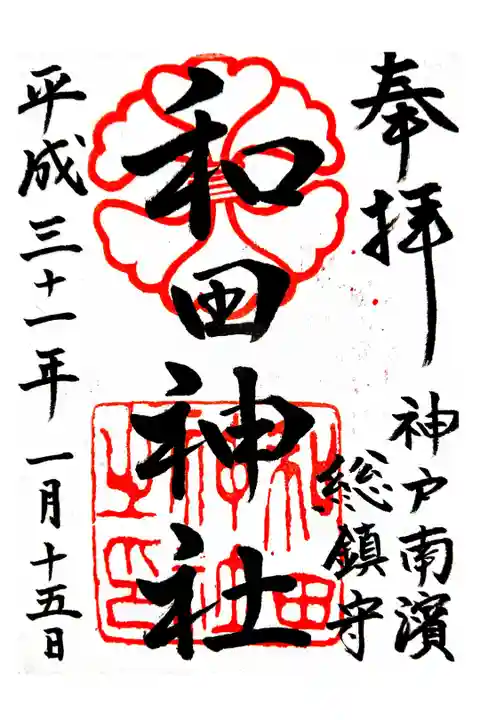 奉拝
神戸南濱
総鎮守
和田神社
和田神社之印
平成三十一年一月十五日